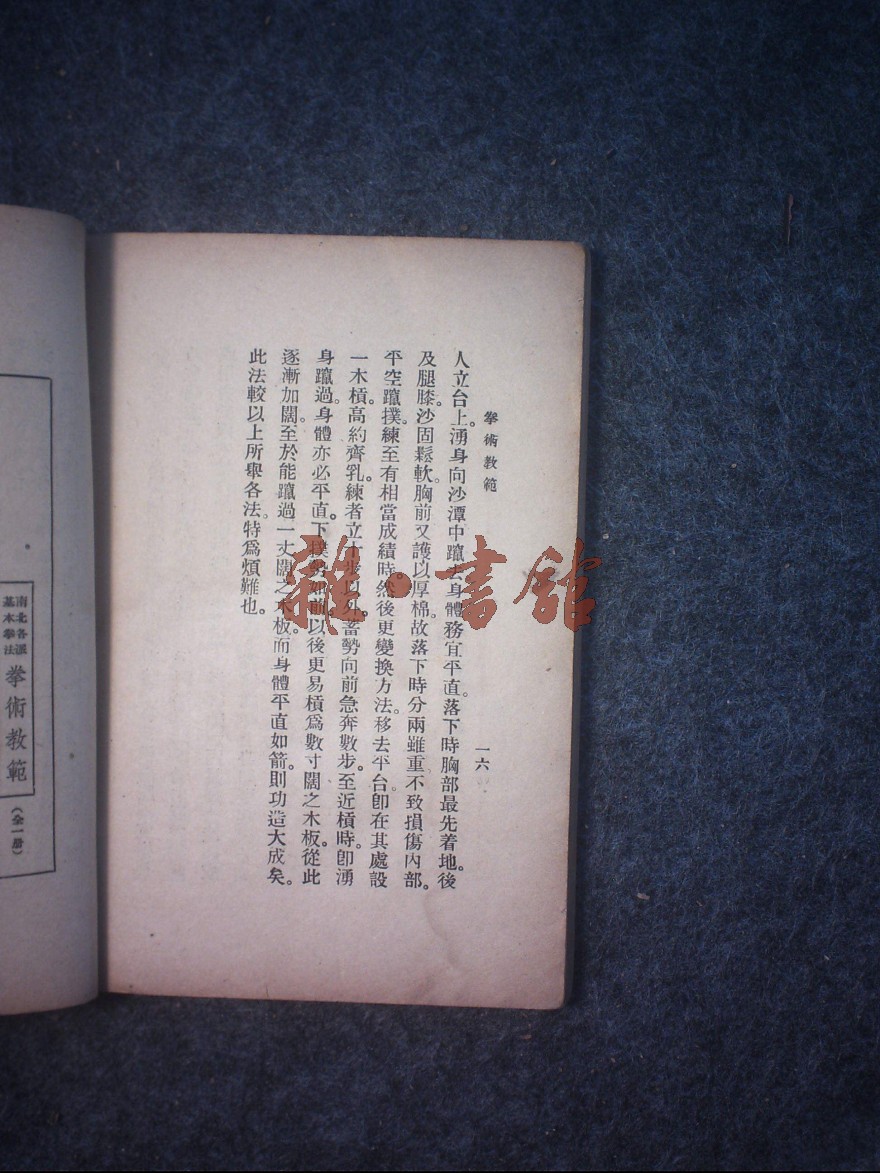 拳術教範
一六
人立台上。湧身向沙潭中躥去。身體務宜平直。落下時胸部最先着地。後
及腿膝。沙固鬆軟。胸前又護以厚棉。故落下時分兩雖重。不致損傷內部。
平空躥撲。練至有相當成績時。然後更變換方法。移去平台。卽在其處設
一木槓。高約齊乳。練者立十步以外。蓄勢向前急奔數步。至近槓時。卽湧
身躥過。身體亦必平直。下撲勢如前。以後更易槓爲數寸闊之木板。從此
逐漸加闊。至於能躥過一丈闊之木板。而身體平直如箭。則功造大成矣。
此法較以上所舉各法。特爲煩難也。
雜·書館
南北各派
基本拳法
拳術教範
（全一册）